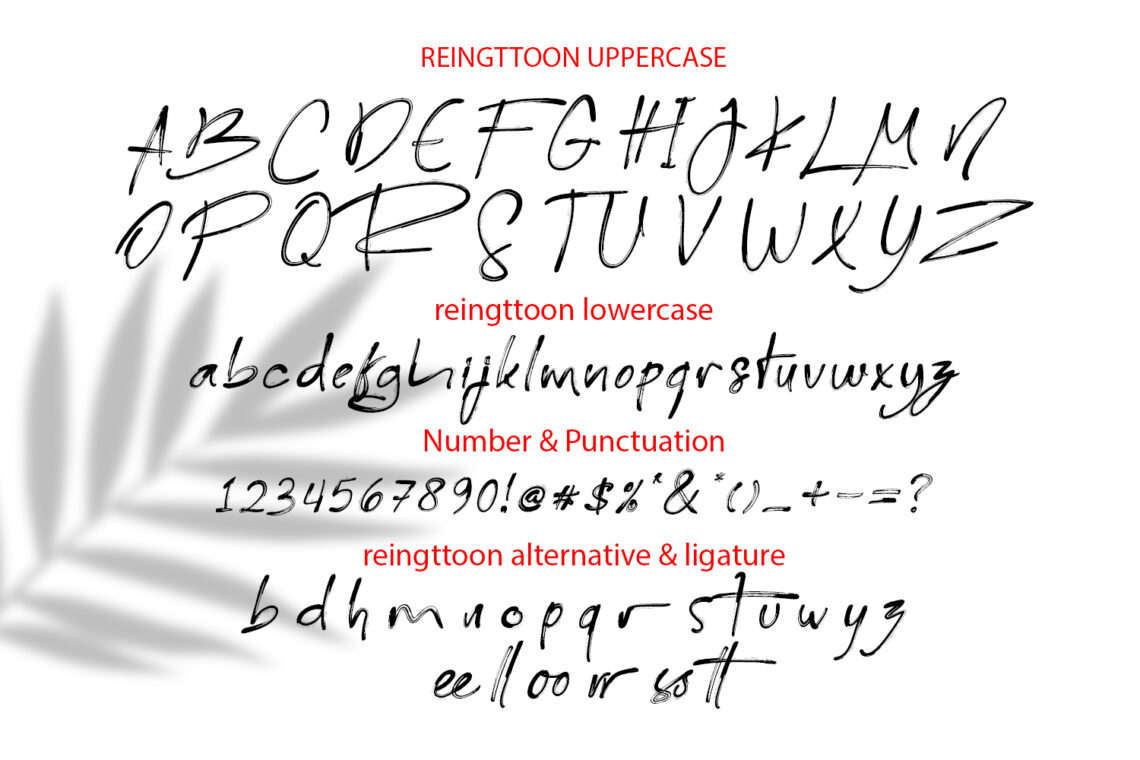 REINGTTOON UPPERCASE
ABCDEFGHIJKLMN
OPQRSTUVWXYZ
reingttoon lowercase
abcdefghijklmnopqrstuvwxyz
Number & Punctuation
1234567890!@#$%^&*()_+-=?
reingttoon alternative & ligature
bdhmnopqrstuwyz
ee ll oo rr ss tt